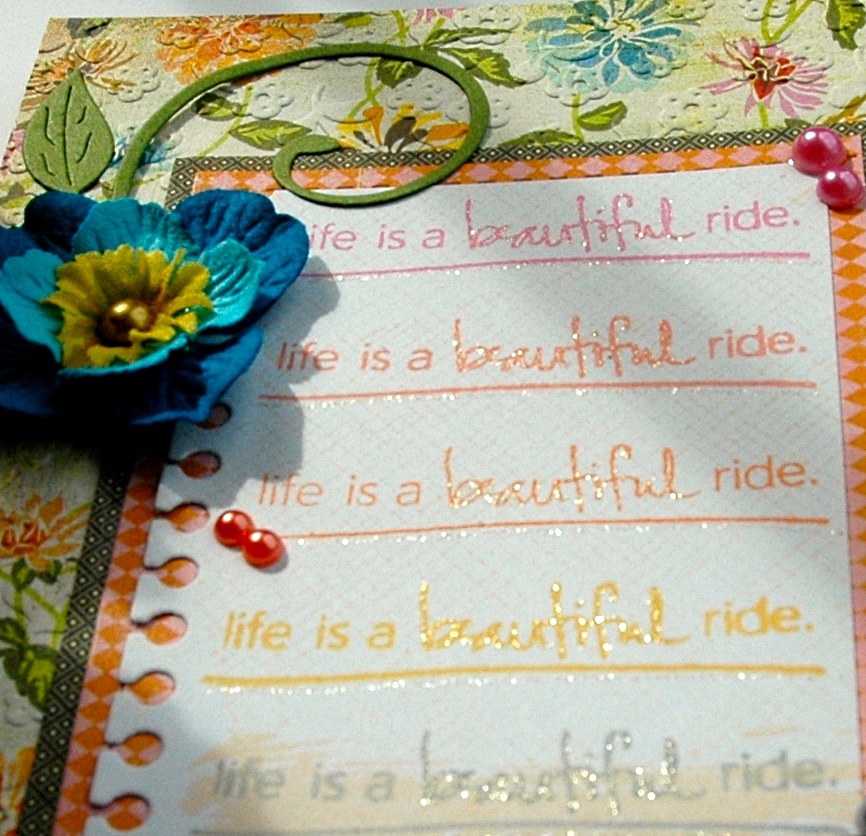 life is a beautiful ride.
life is a beautiful ride.
life is a beautiful ride.
life is a beautiful ride.
life is a beautiful ride.